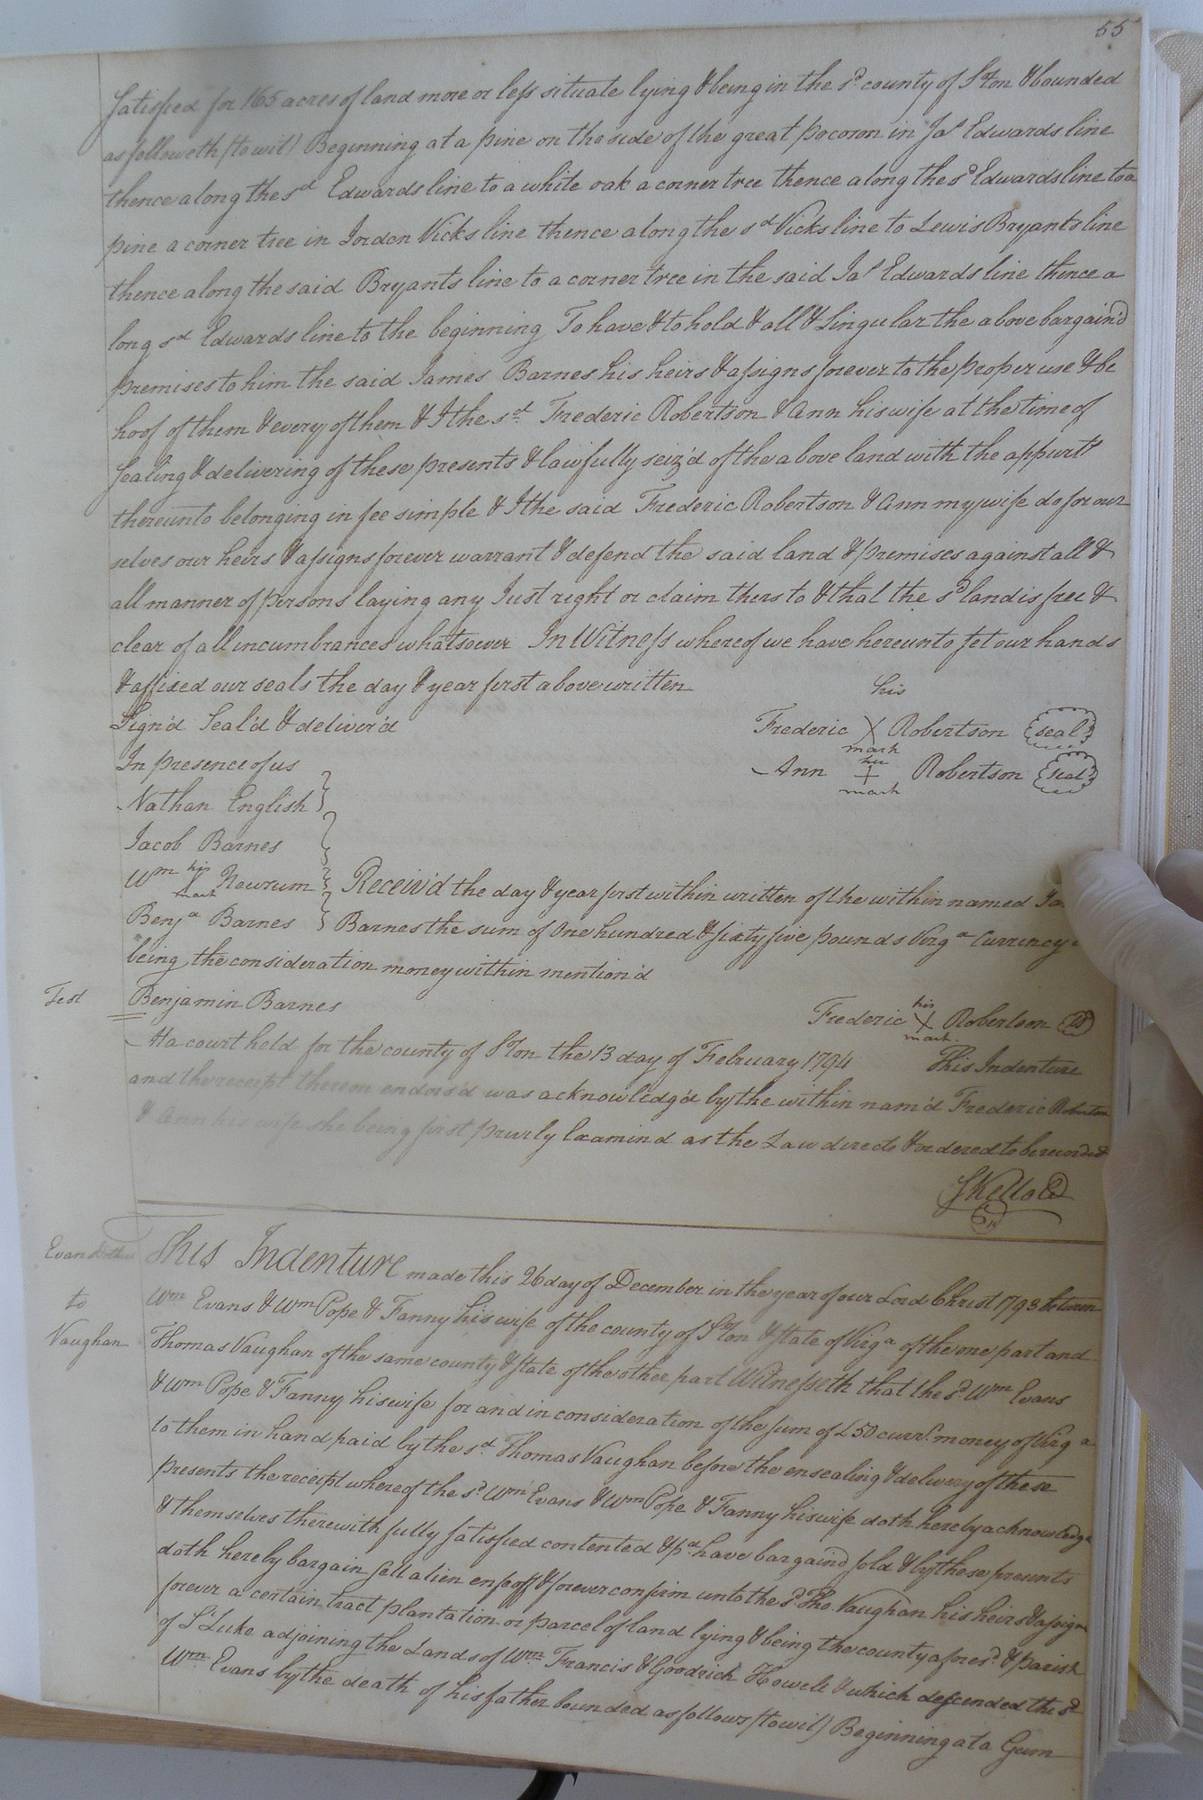 55
satisfied for 165 acres of land more or less situate lying & being in the sd county of Sºton & bounded
as followeth (to wit) Beginning at a pine on the side of the great pocoron in Jaˢ Edwards line
thence along the sd Edwards line to a white oak a corner tree thence along the sd Edwards line to a
pine a corner tree in Jordon Vicks line thence along the sd Vicks line to Lewis Bryants line
thence along the said Bryants line to a corner tree in the said Jaˢ Edwards line thence a
long sd Edwards line to the beginning To have & to hold & all & singular the above bargain'd
premises to him the said James Barnes his heirs & assigns forever to the proper use & be
hoof of them & every of them & I the sd Frederic Robertson & Ann his wife at the time of
sealing & delivering of these presents & lawfully seiz'd of the above land with the appurts
thereunto belonging in fee simple & I the said Frederic Robertson & Ann my wife do for our
selves our heirs & assigns forever warrant & defend the said land & premises against all &
all manner of persons laying any Just right or claim thereto & that the sd land is free &
clear of all incumbrances whatsoever In Witness whereof we have hereunto set our hands
& affixed our seals the day & year first above written
Sign'd Seal'd & deliver'd
his
Frederic X Robertson (seal)
mark
In presence of us
her
Ann + Robertson (seal)
mark
Nathan English
Jacob Barnes
Wm his X mark Newsum
Receiv'd the day & year first within written of the within named Ja
Benja Barnes
Barnes the sum of One hundred & sixty five pounds Virga Currency
being the consideration money within mention'd
Test Benjamin Barnes
Frederic his X mark Robertson
At a court held for the county of Sºton the 13 day of February 1794 This Indenture
and the receipt thereon endors'd was acknowledg'd by the within nam'd Frederic Robertson
& Ann his wife she being first privily Examined as the Law directs & ordered to be recorded
Evans & others
to
Vaughan
This Indenture made this 26 day of December in the year of our Lord Christ 1793 between
Wm Evans & Wm Pope & Fanny his wife of the county of Sºton & State of Virga of the one part and
Thomas Vaughan of the same county & State of the other part Witnesseth that the sd Wm Evans
& Wm Pope & Fanny his wife for and in consideration of the sum of £50 curr. money of Virga
to them in hand paid by the sd Thomas Vaughan before the ensealing & delivery of these
presents the receipt whereof the sd Wm Evans & Wm Pope & Fanny his wife doth hereby acknowledge
& themselves therewith fully satisfied contented & pd have bargain'd sold & by these presents
doth hereby bargain sell alien enfeoff & forever confirm unto the sd Tho. Vaughan his heirs & assigns
forever a certain tract plantation or parcel of land lying & being the county aforesd & parish
of St Luke adjoining the Lands of Wm Francis & Goodrich Howell & which descended the sd
Wm Evans by the death of his father bounded as follows (to wit) Beginning at a Gum